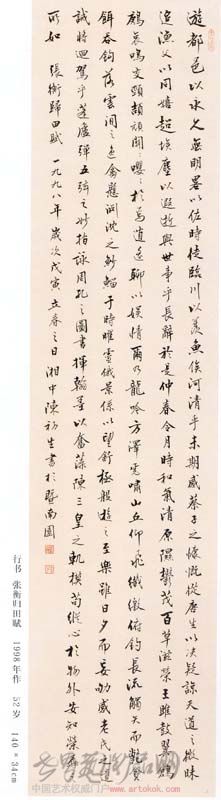 遊都邑以永久無明畧以佐時徒臨川以羨魚俟河清乎未期感蔡子之慷慨從唐生以決疑諒天道之微昧
追漁父以同嬉超埃塵以遐逝與世事乎長辭於是仲春令月時和氣清原隰鬱茂百草滋榮王雎鼓翼鶬
鶊哀鳴交頸頡頏關關嚶嚶於焉逍遙聊以娛情爾乃龍吟方澤虎嘯山丘仰飛纖繳俯釣長流觸矢而斃貪
餌吞鉤落雲間之逸禽懸淵沈之魦鰡于時曜靈俄景係以望舒極般遊之至樂雖日夕而忘劬感老氏之遺
誡將迴駕乎蓬廬彈五弦之妙指詠周孔之圖書揮翰墨以奮藻陳三皇之軌模苟縱心於物外安知榮辱之
所如 張衡歸田賦 一九九八年歲次戊寅立春之日湘中陳初生書於暨南園
行书 张衡归田赋 1998年作 52岁 140×34cm
中国艺术权威门户 www.artokok.com